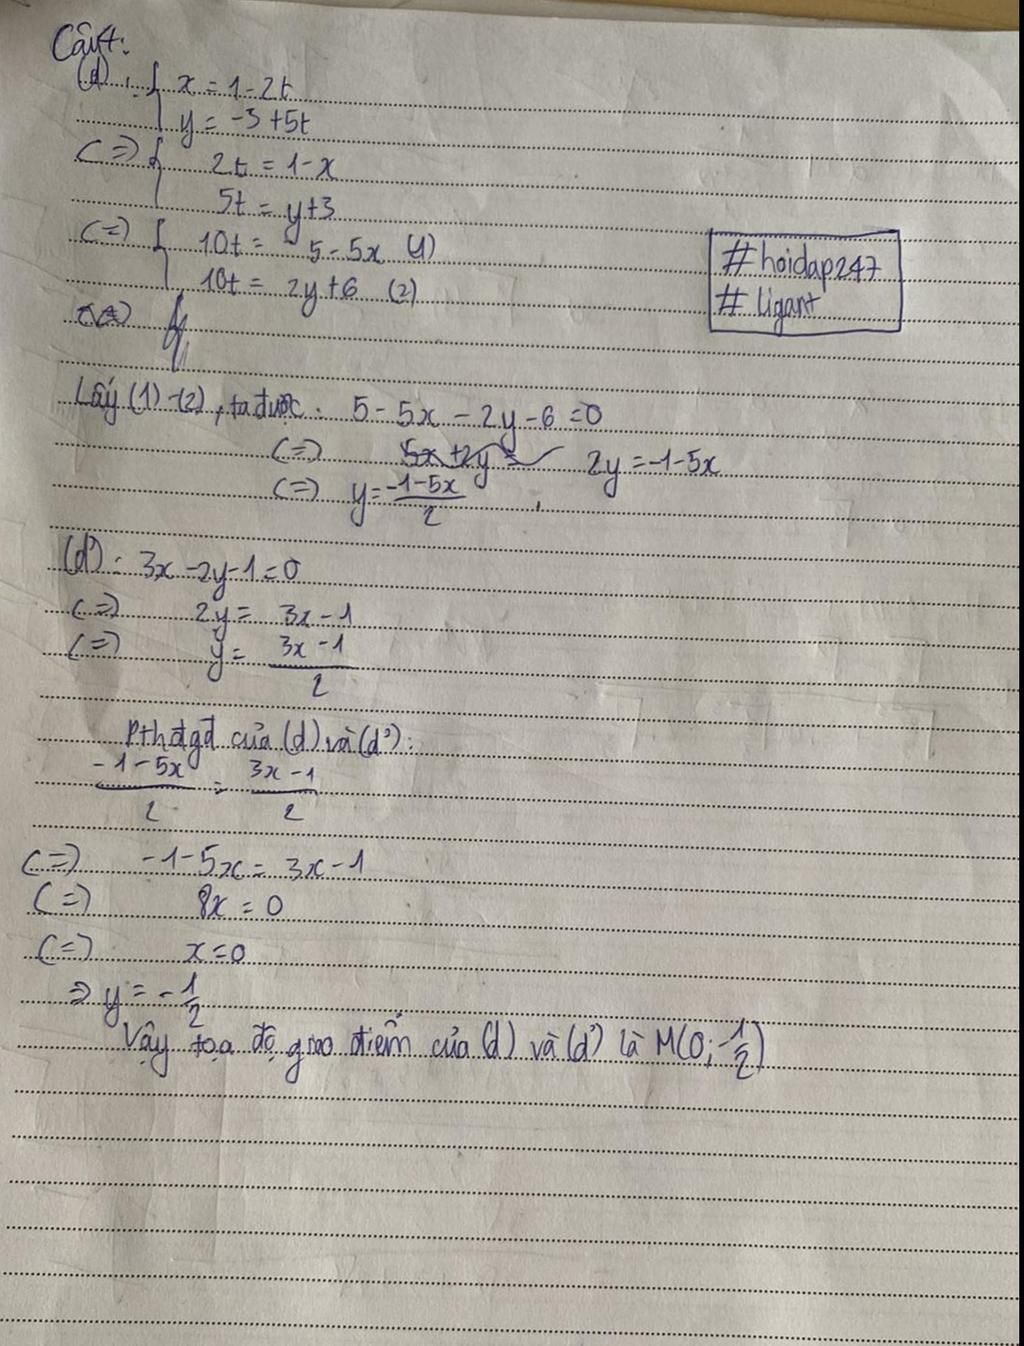 Câu 4:
(d): { x = 1 - 2t
y = -3 + 5t
<=> { 2t = 1 - x
5t = y + 3
<=> { 10t = 5 - 5x (1)
10t = 2y + 6 (2)
#hoidap247
# ligant
Lấy (1) - (2), ta được: 5 - 5x - 2y - 6 = 0
<=> 2y = -1 - 5x
<=> y = \frac{-1 - 5x}{2}
(d'): 3x - 2y - 1 = 0
<=> 2y = 3x - 1
<=> y = \frac{3x - 1}{2}
Pthđgđ của (d) và (d'):
\frac{-1 - 5x}{2} = \frac{3x - 1}{2}
<=> -1 - 5x = 3x - 1
<=> 8x = 0
<=> x = 0
=> y = -\frac{1}{2}
Vậy tọa độ giao điểm của (d) và (d') là M(0; -\frac{1}{2})